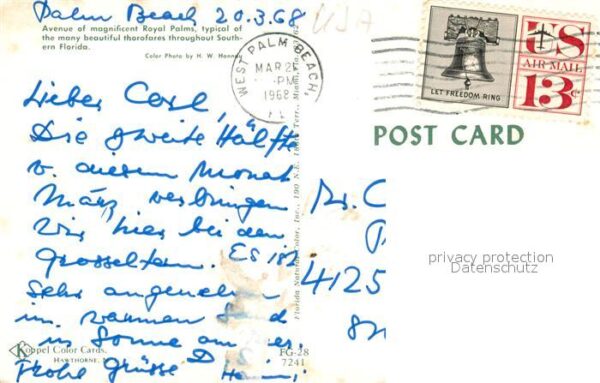 Palm Beach 20.3.68
USA
Avenue of magnificent Royal Palms, typical of
the many beautiful thorofares throughout South-
ern Florida.
Color Photo by H. W. Hannau
WEST PALM BEACH
MAR 2
PM
1968
FL
US
AIR MAIL
13c
LET FREEDOM RING
POST CARD
Lieber Carl,
Die zweite Hälfte
v. diesem Monat
März verbringen
wir hier bei den
Grosseltern. Es ist
sehr angenehm
im warmen
in Sonne am
Frohe Grüsse
Florida Natural Color, Inc., 190 N.E.
Miami, Fla.
Koppel Color Cards,
HAWTHORNE, N.
FG-28
7241
4125
privacy protection
Datenschutz